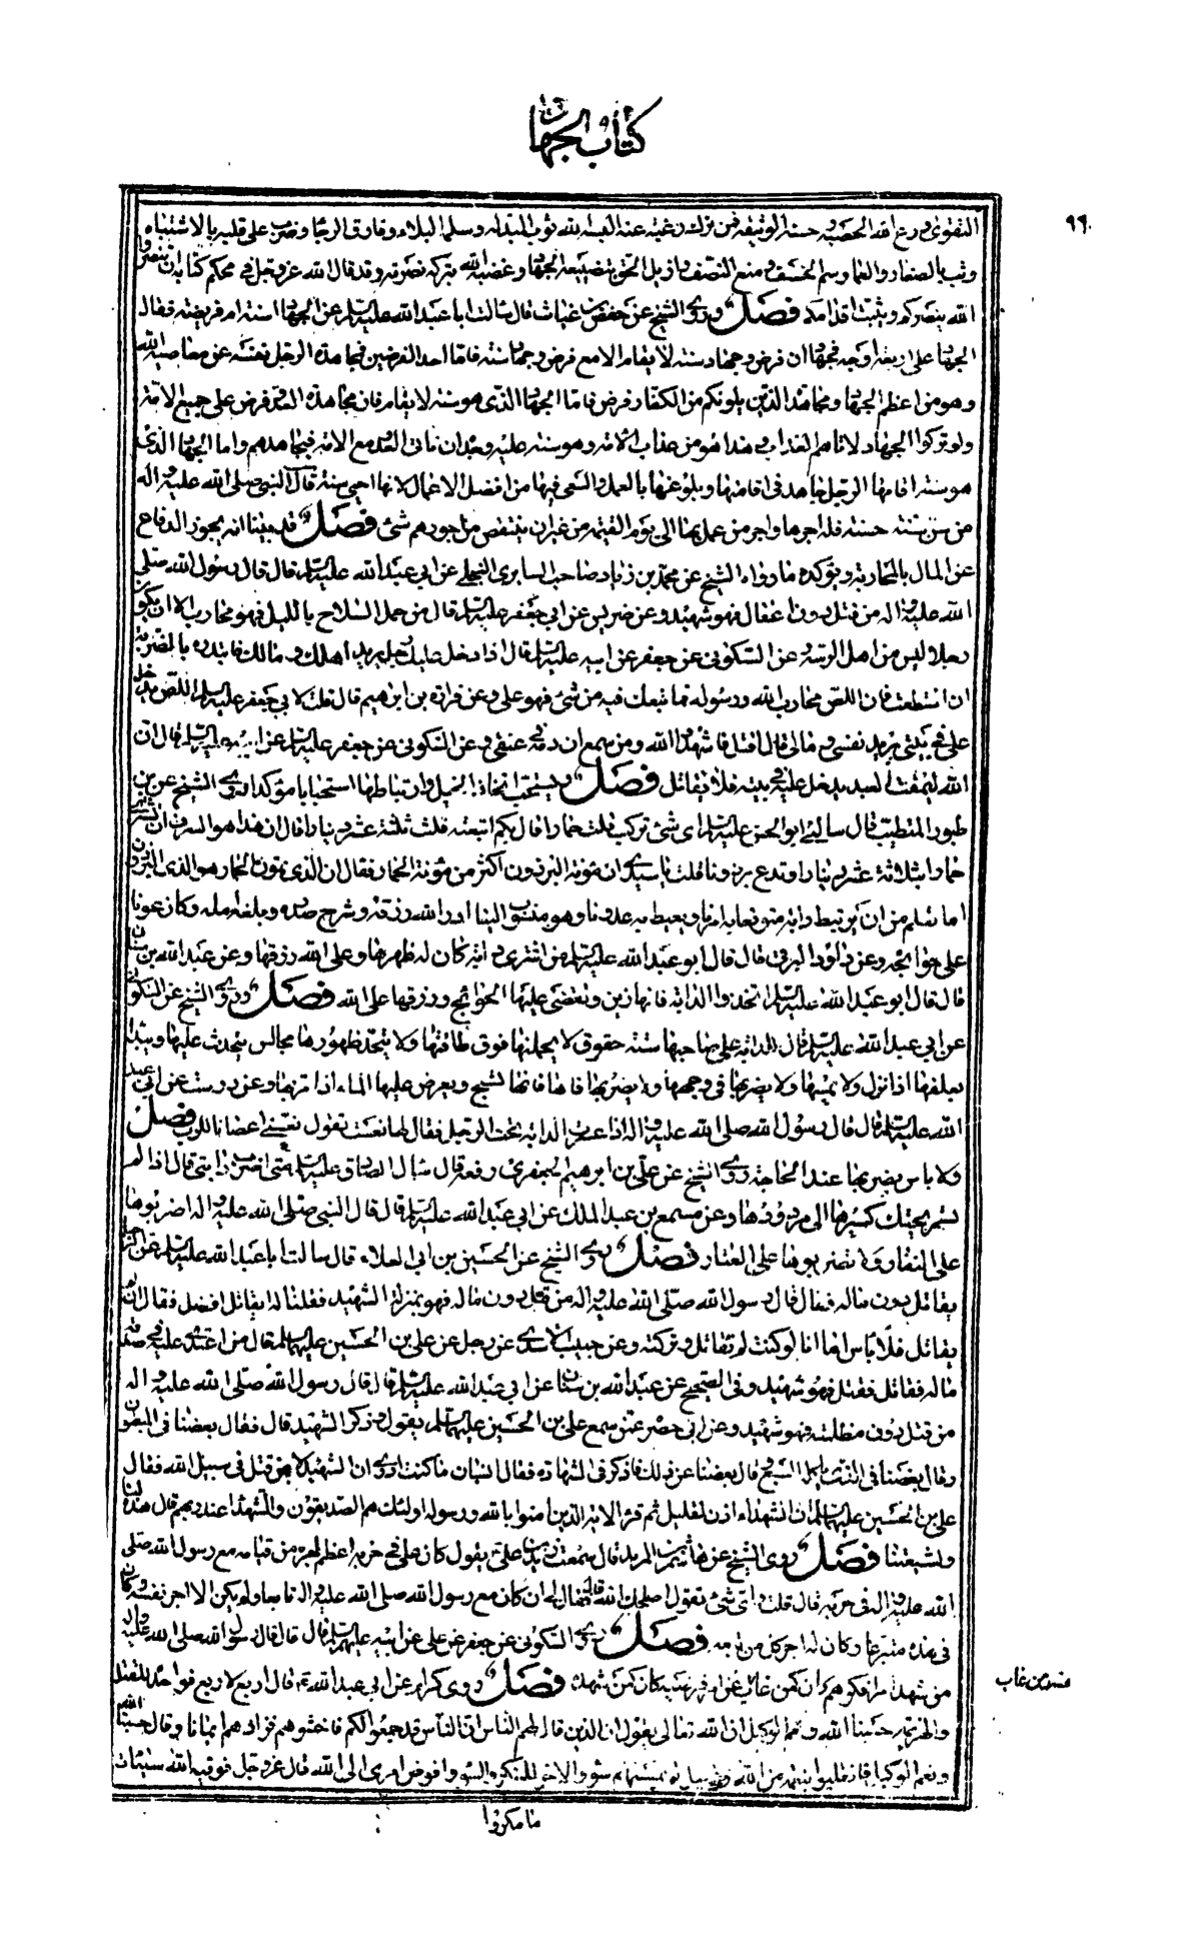 كتاب الجهاد
٩٩٠
التقوى ودرع الله الحصينة وجنته الوثيقة فمن تركه رغبة عنه البسه الله ثوب المذلة وشمله البلاء وفارق الرخا وضرب على قلبه بالاشتباه
وديث بالصغار والقما وسيم الخسف ومنع النصف واديل الحق بتضييعه الجهاد وغضب الله بتركه نصرته وقد قال الله عز وجل في محكم كتابه ان تنصروا
الله ينصركم ويثبت اقدامكم فصل وروى الشيخ عن حفص بن غياث قال سالت ابا عبد الله عليه السلم عن الجهاد اسنة ام فريضة فقال
الجهاد على اربعة اوجه فجهادان فرض وجهاد سنة لا يقام الا مع فرض وجهاد سنة فاما احد الفرضين فمجاهدة الرجل نفسه عن معاصى الله
وهو من اعظم الجهاد ومجاهدة الذين يلونكم من الكفار فرض فاما الجهاد الذى هو سنة لا يقام فان مجاهدة العدو فرض على جميع الامة
ولو تركوا الجهاد لاتاهم العذاب وهذا هو من عذاب الامة وهو سنة عليه وحده ان ياتى العدو مع الامة فيجاهدهم واما الجهاد الذى
هو سنة اقامها الرجل جاهد فى اقامتها وبلوغها بالعمل والسعى فيها من افضل الاعمال لانها احيى سنة قال النبى صلى الله عليه واله
من سن سنة حسنة فله اجرها واجر من عمل بها الى يوم القيمة من غير ان ينتقص من اجورهم شئ فصل قد بينا انه يجوز الدفاع
عن المال بالمحاربة ويؤكده ما رواه الشيخ عن محمد بن زياد صاحب السابرى البجلى عن ابى عبد الله عليه السلم قال قال رسول الله صلى
الله عليه واله من قتل دون عقال فهو شهيد وعن ضريس عن ابى جعفر عليه السلم قال من حمل السلاح بالليل فهو محارب الا ان يكون
رجلا ليس من اهل الريبة وعن السكونى عن جعفر عن ابيه عليه السلم قال اذا دخل عليك رجل يريد اهلك و مالك فابدره بالضربة
ان استطعت فان اللص محارب الله ورسوله فما تبعك فيه من شئ فهو على وعن فزارة بن ابراهيم قال قلت لابى جعفر عليه السلم اللص يدخل
على فى بيتى يريد نفسى و مالى قال اقتل فاشهد الله ومن سمع ان دمه فى عنقى وعن السكونى عن جعفر عليه السلم عن ابيه عليه السلم قال ان
الله ليمقت العبد يدخل عليه فى بيته فلا يقاتل فصل ويستحب اتخاذ الخيل وارتباطها استحبابا مؤكدا روى الشيخ عن بن
طيفور المتطبب قال سالنى ابو الحسن عليه السلم اى شئ تركب قلت حمارا قال بكم ابتعته قلت ثلثة عشر دينارا قال ان هذا هو السرف ان تشترى
حمارا بثلاثة عشر دينارا وتدع برذونا قلت يا سيدى ان مئونة البرذون اكثر من مئونة الحمار فقال ان الذى يمون الحمار هو الذى يمون البرذون
اما تعلم من ان يرتبط دابة متوقعا به امرنا ويغيظ به عدونا وهو منسوب الينا ادر الله رزقه وشرح صدره وبلغه امله وكان عونا
على حوائجه وعن داود الرقى قال قال ابو عبد الله عليه السلم من اشترى دابة كان له ظهرها وعلى الله رزقها وعن عبد الله بن سنان
قال قال ابو عبد الله عليه السلم اتخذوا الدابة فانها زين وتقضى عليها الحوائج ورزقها على الله فصل وروى الشيخ عن السكونى
عن ابى عبد الله عليه السلم قال للدابة على صاحبها ستة حقوق لا يحملها فوق طاقتها ولا يتخذ ظهورها مجالس يتحدث عليها ويبدا
بعلفها اذا نزل ولا يسمها ولا يضربها فى وجهها ولا يضربها فانها تسبح ويعرض عليها الماء اذا مر بها وعن درست عن ابى عبد
الله عليه السلم قال قال رسول الله صلى الله عليه واله اذا عثرت الدابة تحت الرجل فقال لها تعست تقول تعس اعصانا للرب فصل
ولا باس بضربها عند الحاجة روى الشيخ عن على بن ابراهيم الجعفرى رفعه قال سال الصادق عليه السلم متى اضرب دابتى قال اذا لم
تسر تحتك كسيرها الى مزودها وعن مسمع بن عبد الملك عن ابى عبد الله عليه السلم قال قال النبى صلى الله عليه واله اضربوها
على النفار ولا تضربوها على العثار فصل روى الشيخ عن الحسين بن ابى العلاء قال سالت ابا عبد الله عليه السلم عن الرجل
يقاتل دون ماله فقال قال رسول الله صلى الله عليه واله من قتل دون ماله فهو بمنزلة الشهيد فقلنا له ايقاتل افضل فقال ان لم
يقاتل فلا باس اما انا لو كنت لم اقاتل وتركته وعن حبيب الاسدى عن رجل عن على بن الحسين عليهما السلم قال من اعتدى عليه فى صدقة
ماله فقاتل فقتل فهو شهيد وفى الصحيح عن عبد الله بن سنان عن ابى عبد الله عليه السلم قال قال رسول الله صلى الله عليه واله
من قتل دون مظلمته فهو شهيد وعن ابى حصر عمن سمع على بن الحسين عليهما السلم يقول وذكر الشهيد قال فقال بعضنا فى المبطون
وقال بعضنا فى الذى ياكله السبع وقال بعضنا غير ذلك فاذكر فى الشهادة فقال انسان ما كنت ادرى ان الشهيد الا من قتل فى سبيل الله فقال
على بن الحسين عليهما السلم ان الشهداء اذن لقليل ثم قرء الاية الذين امنوا بالله ورسوله اولئك هم الصديقون والشهداء عند ربهم قال هذه لنا
ولشيعتنا فصل روى الشيخ عن هاشم بن البريد قال سمعت زيد بن على يقول كان على فى حربه اعظم اجرا من قيامه مع رسول الله صلى
الله عليه واله فى حربه قال قلت واى شئ تقول اصلحك الله قال فقال لى ان كان مع رسول الله صلى الله عليه واله تابعا ولم يكن الا اجر نفسه وكان
فى هذه متبوعا وكان له اجر كل من تبعه فصل روى السكونى عن جعفر عن على عن ابيه عليهم السلم قال قال رسول الله صلى الله عليه واله
من شهد امرا فكرهه كان كمن غاب عنه ومن غاب عن امر فرضيه كان كمن شهده فصل روى كرام عن ابى عبد الله ع قال اربع لاربع فواحدة للقتل
والهزيمة حسبنا الله ونعم الوكيل ان الله تعالى يقول الذين قال لهم الناس ان الناس قد جمعوا لكم فاخشوهم فزادهم ايمانا وقالوا حسبنا الله
ونعم الوكيل فانقلبوا بنعمة من الله وفضل لم يمسسهم سوء والاخرى للمكر والسوء وافوض امرى الى الله قال عز وجل فوقيه الله سيئات
ما مكروا